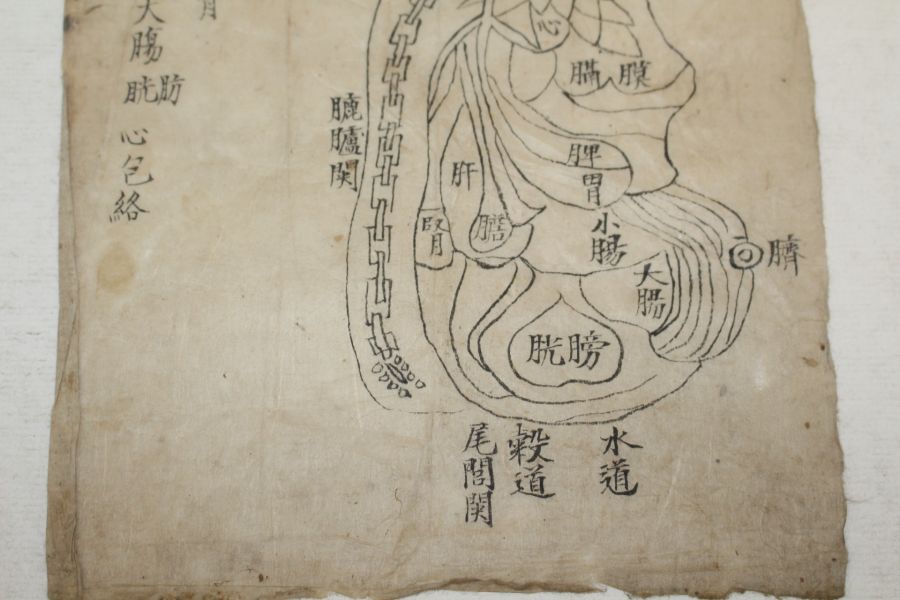 大膓
胱肪
心包絡
心
膈膜
脾
胃
肝
膽
腎
小腸
大腸
臍
膀胱
尾閭関
穀道
水道